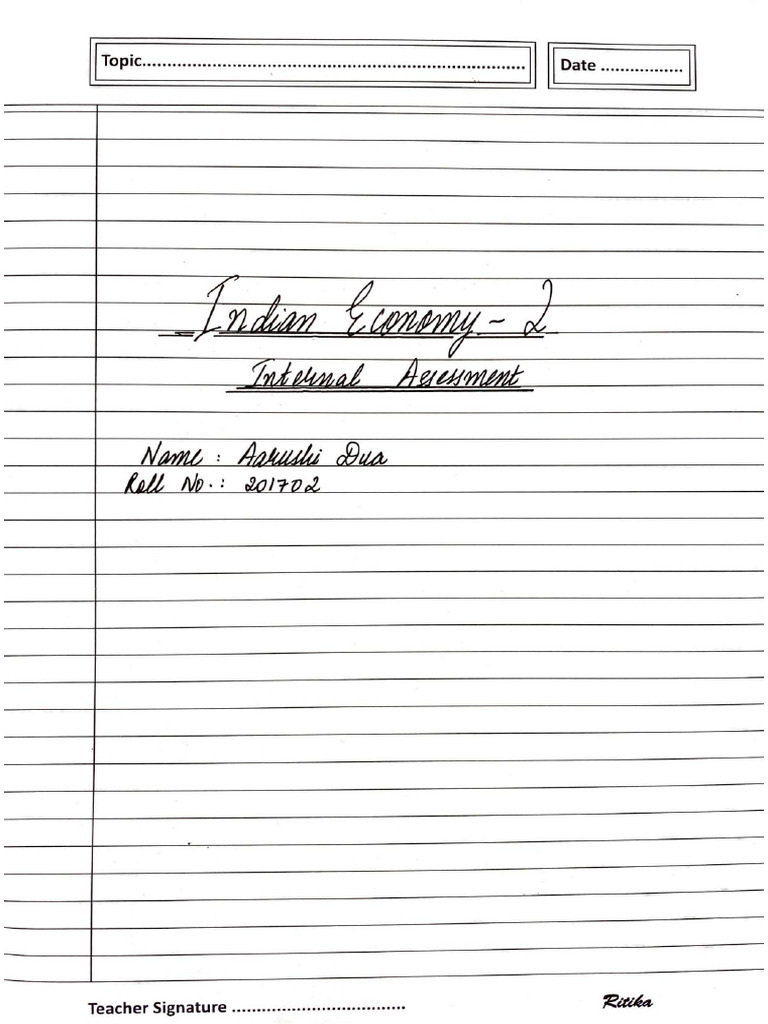 Topic............................................................................ Date .................
Indian Economy - 2
Internal Assessment
Name : Aarushi Dua
Roll No. : 201702
Teacher Signature ..................................
Ritika